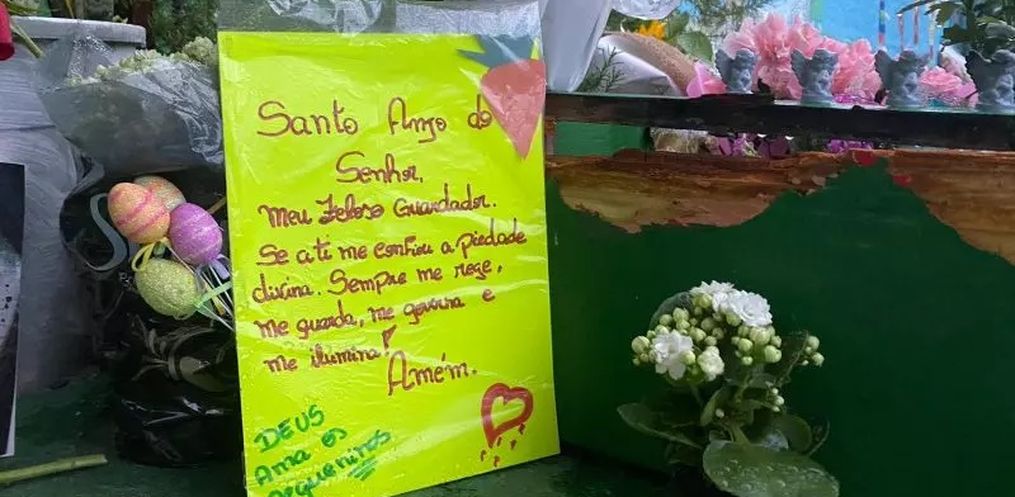 Santo Anjo do
Senhor,
Meu Zeloso Guardador.
Se a ti me confiou a piedade
divina. Sempre me rege,
me guarda, me governa e
me ilumina!
Amém.
DEUS
Ama os
pequeninos